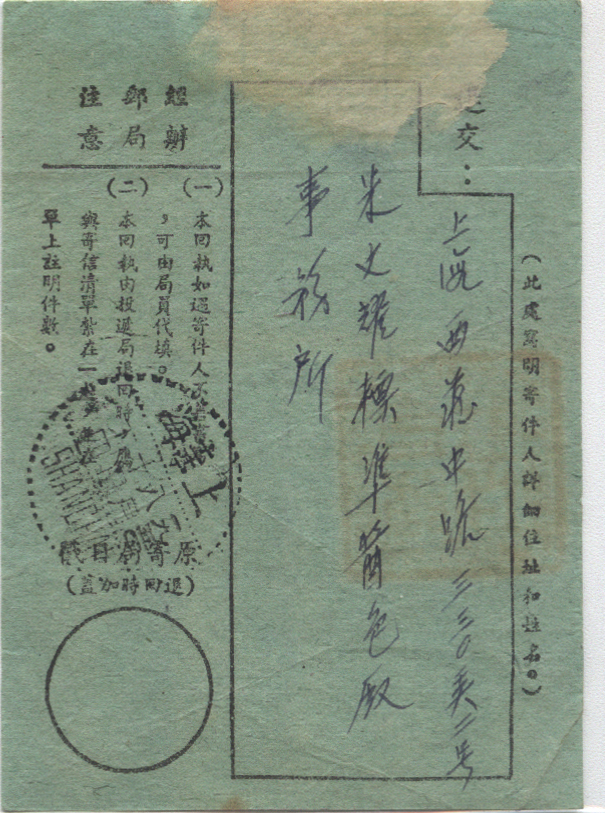 (此處寫明寄件人詳細住址和姓名。)
交:
上海西藏中路三三〇弄二号
朱文耀標準簡色版
事務所
經辦
郵局
注意
(一)
本回執如遇寄件人不
,可由局員代填。
(二)
本回執由投遞局退回時,應
與寄信清單紮在一
單上註明件數。
上海
SHANGHAI
原寄局日戳
(退回時加蓋)